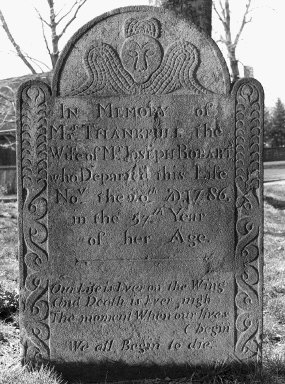 In Memory of
Mrs Thankfull the
Wife of Mr Joseph
who Departed this Life
Novr the 20th AD 1786
in the 57th Year
of her Age.
Our Life is Ever on the Wing
And Death is Ever nigh
The moment When our lives
begin
We all Begin to die